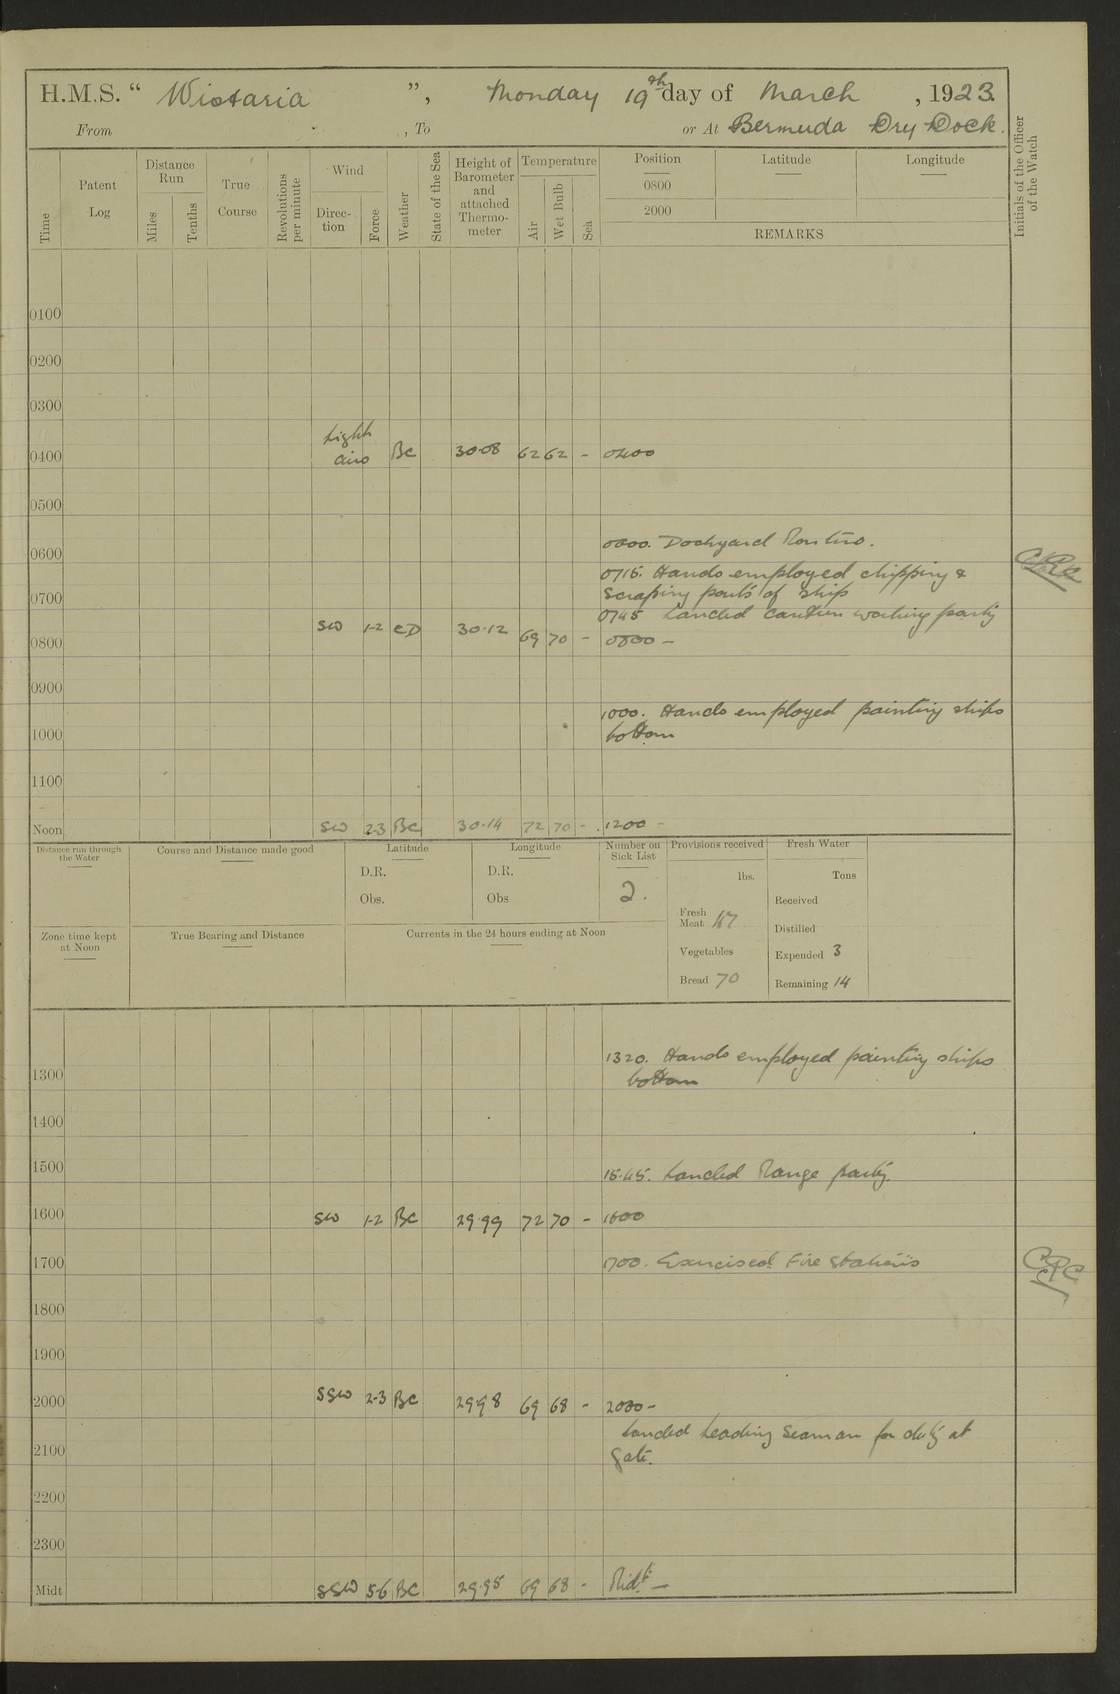 H.M.S. “ Wistaria ”, Monday 19th day of March , 1923.
From , To or At Bermuda Dry Dock.
Time
Patent Log
Distance Run
Miles
Tenths
True Course
Revolutions per minute
Wind
Direc-tion
Force
Weather
State of the Sea
Height of Barometer and attached Thermo-meter
Temperature
Air
Wet Bulb
Sea
Position
0800
2000
Latitude
Longitude
REMARKS
Initials of the Officer of the Watch
0100
0200
0300
Light
0400 airs BC 30.08 62 62 - 0400
0500
0600. Dockyard Routine.
0600
0715. Hands employed chipping &
0700 scraping parts of ship
0745 Landed canteen working party
0800 SW 1-2 CD 30.12 69 70 - 0800 -
0900
1000. Hands employed painting ships
1000 bottom
1100
Noon SW 2-3 BC 30.14 72 70 - 1200 -
Distance run through the Water
Course and Distance made good
Latitude
D.R.
Obs.
Longitude
D.R.
Obs
Number on Sick List
2.
Provisions received
lbs.
Fresh Meat 47
Vegetables
Bread 70
Fresh Water
Tons
Received
Distilled
Expended 3
Remaining 14
Zone time kept at Noon
True Bearing and Distance
Currents in the 24 hours ending at Noon
1320. Hands employed painting ships
1300 bottom
1400
1500 15.45. Landed Range party.
1600 SW 1-2 BC 29.99 72 70 - 1600
1700 1700. Exercised Fire Stations
1800
1900
2000 SSW 2-3 BC 29.98 69 68 - 2000 -
Landed Leading Seaman for duty at
2100 gate.
2200
2300
Midt SSW 5-6 BC 29.95 69 68 - Midt. -